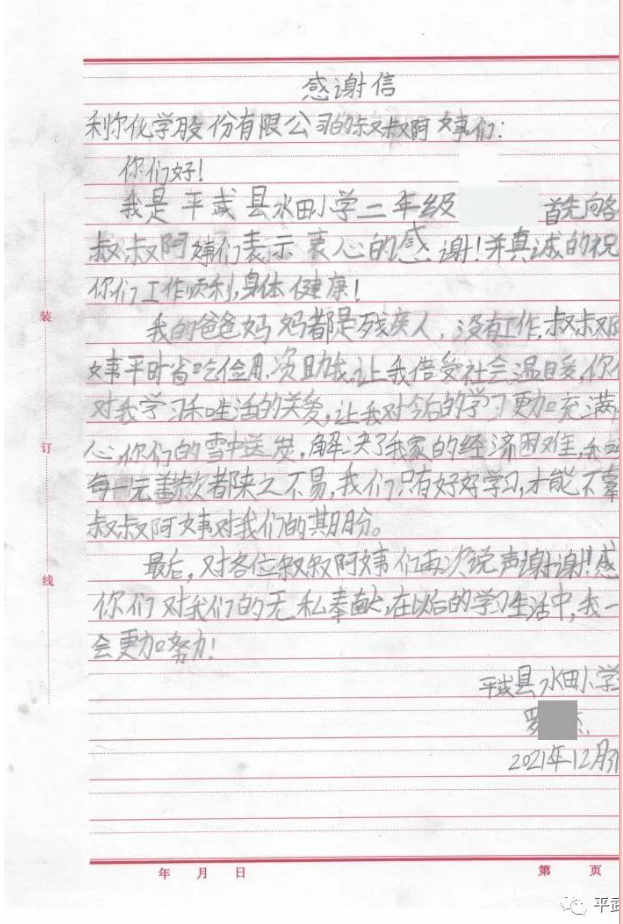 感谢信
利尔化学股份有限公司的叔叔阿姨们:
你们好!
我是平武县水田小学二年级 首先向各
叔叔阿姨们表示衷心的感谢!并真诚的祝
你们工作顺利,身体健康!
我的爸爸妈妈都是残疾人,没有工作,叔叔阿
姨平时省吃俭用,资助我,让我倍受社会温暖,你们
对我学习和生活的关爱,让我对今后的学习更加充满
心,你们的雪中送炭,解决了我家的经济困难,我
每一元善款都来之不易,我们只有好好学习,才能不辜
叔叔阿姨对我们的期盼。
最后,对各位叔叔阿姨们再次说声谢谢!感
你们对我们的无私奉献,在以后的学习生活中,我一
会更加努力!
平武县水田小学
罗 杰
2021年12月31
装
订
线
年 月 日
第 页
平武